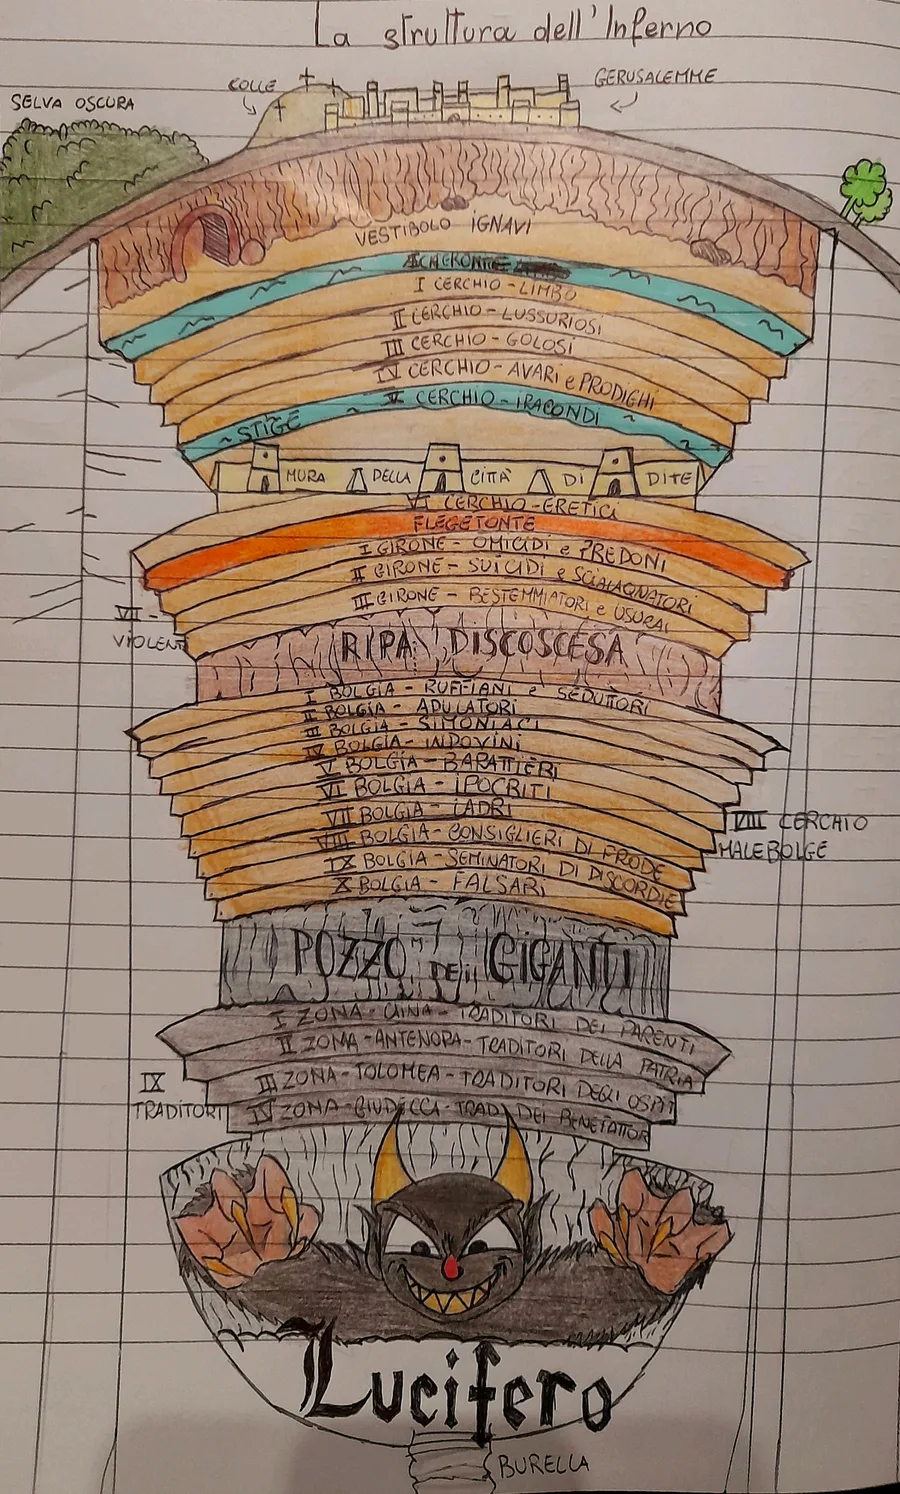 La struttura dell'Inferno
COLLE
GERUSALEMME
SELVA OSCURA
VESTIBOLO IGNAVI
ACHERONTE
I CERCHIO - LIMBO
II CERCHIO - LUSSURIOSI
III CERCHIO - GOLOSI
IV CERCHIO - AVARI e PRODIGHI
V CERCHIO - IRACONDI
STIGE
MURA DELLA CITTÀ DI DITE
VI CERCHIO - ERETICI
FLEGETONTE
I GIRONE - OMICIDI e PREDONI
II GIRONE - SUICIDI e SCIALAQUATORI
III GIRONE - BESTEMMIATORI e USURAI
VII -
VIOLENTI
RIPA DISCOSCESA
I BOLGIA - RUFFIANI e SEDUTTORI
II BOLGIA - ADULATORI
III BOLGIA - SIMONIACI
IV BOLGIA - INDOVINI
V BOLGIA - BARATTIERI
VI BOLGIA - IPOCRITI
VII BOLGIA - LADRI
VIII BOLGIA - CONSIGLIERI DI FRODE
IX BOLGIA - SEMINATORI DI DISCORDIE
X BOLGIA - FALSARI
VIII CERCHIO
MALEBOLGE
POZZO DEI GIGANTI
I ZONA - CAINA - TRADITORI DEI PARENTI
II ZONA - ANTENORA - TRADITORI DELLA PATRIA
III ZONA - TOLOMEA - TRADITORI DEGLI OSPITI
IV ZONA - GIUDECCA - TRAD. DEI BENEFATTORI
IX
TRADITORI
Lucifero
BURELLA